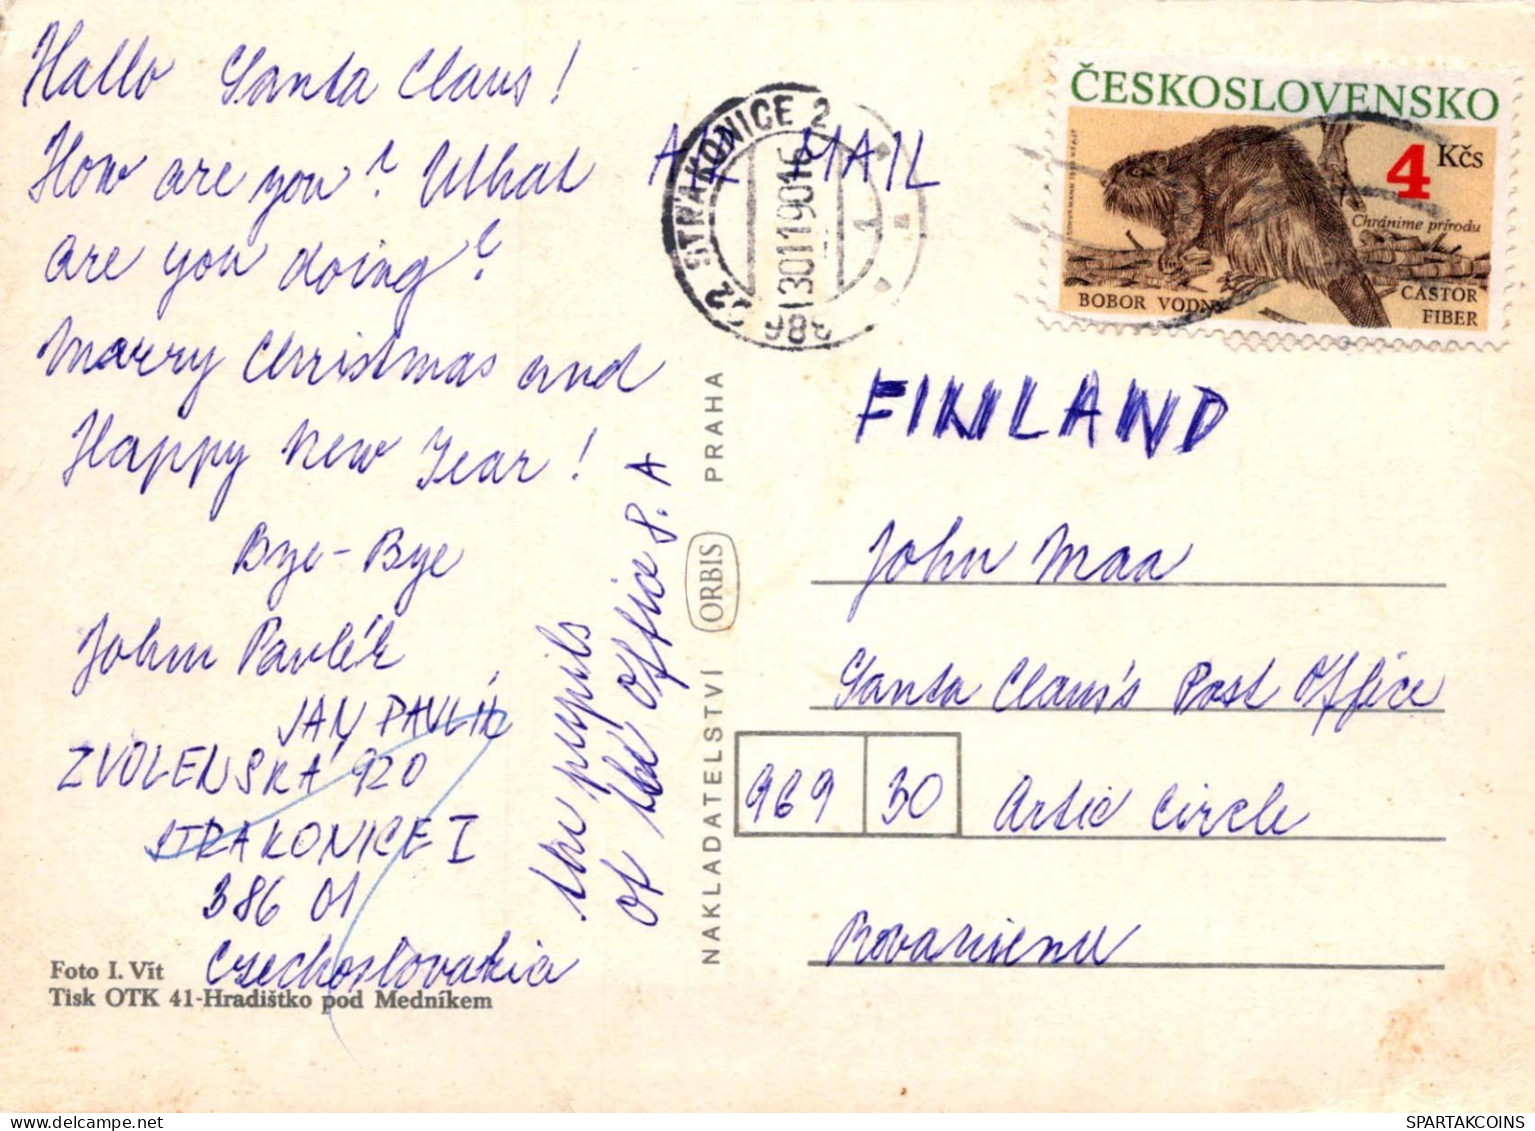 Hallo Santa Claus!
How are you? What
are you doing?
Marry Christmas and
Happy New Year!
Bye-Bye
John Pavlík
JAN PAVLÍK
ZVOLENSKÁ 920
STRAKONICE I
386 01
Czechoslovakia
Foto I. Vít
Tisk OTK 41-Hradištko pod Medníkem
the pupils
of the Office S. A
NAKLADATELSTVÍ ORBIS PRAHA
AIR MAIL
STRAKONICE 2
ČESKOSLOVENSKO
4 Kčs
Chráníme prírodu
BOBOR VODNÝ
CASTOR
FIBER
FINLAND
John Maa
Santa Claus's Post Office
969 30 Artic Circle
Rovaniemu
SPARTAKCOINS.COM